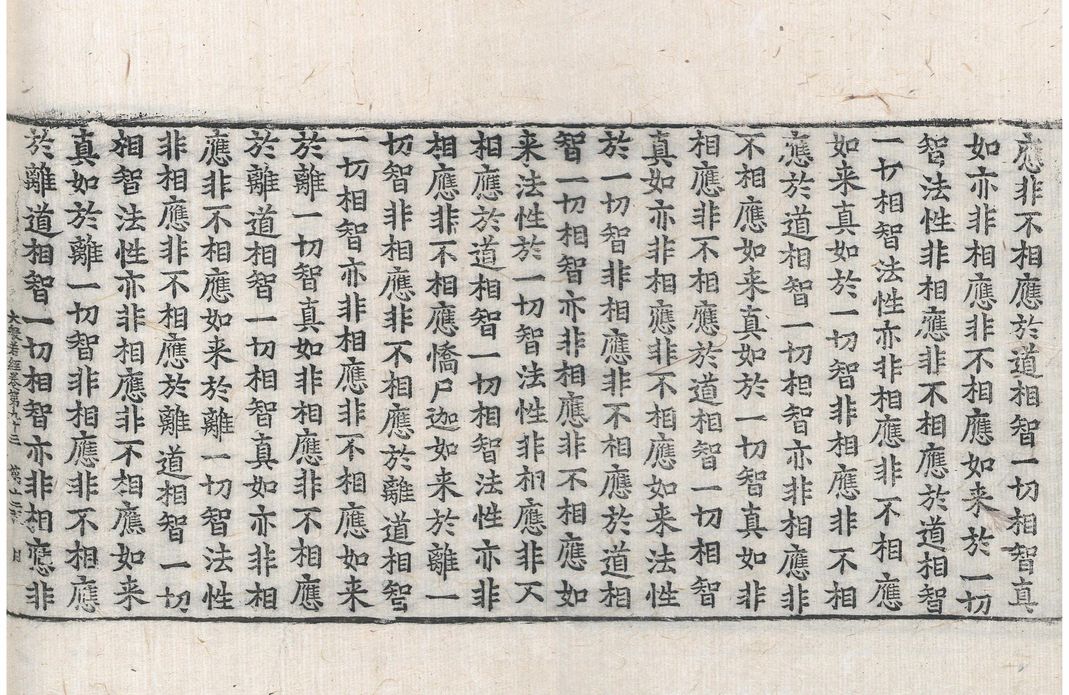 應非不相應於道相智一切相智真
如亦非相應非不相應如来於一切
智法性非相應非不相應於道相智
一切相智法性亦非相應非不相應
如来真如於一切智非相應非不相
應於道相智一切相智亦非相應非
不相應如来真如於一切智真如非
相應非不相應於道相智一切相智
真如亦非相應非不相應如来法性
於一切智非相應非不相應於道相
智一切相智亦非相應非不相應如
来法性於一切智法性非相應非不
相應於道相智一切相智法性亦非
相應非不相應憍尸迦如来於離一
切智非相應非不相應於離道相智
一切相智亦非相應非不相應如来
於離一切智真如非相應非不相應
於離道相智一切相智真如亦非相
應非不相應如来於離一切智法性
非相應非不相應於離道相智一切
相智法性亦非相應非不相應如来
真如於離一切智非相應非不相應
於離道相智一切相智亦非相應非
大般若經卷第九十三